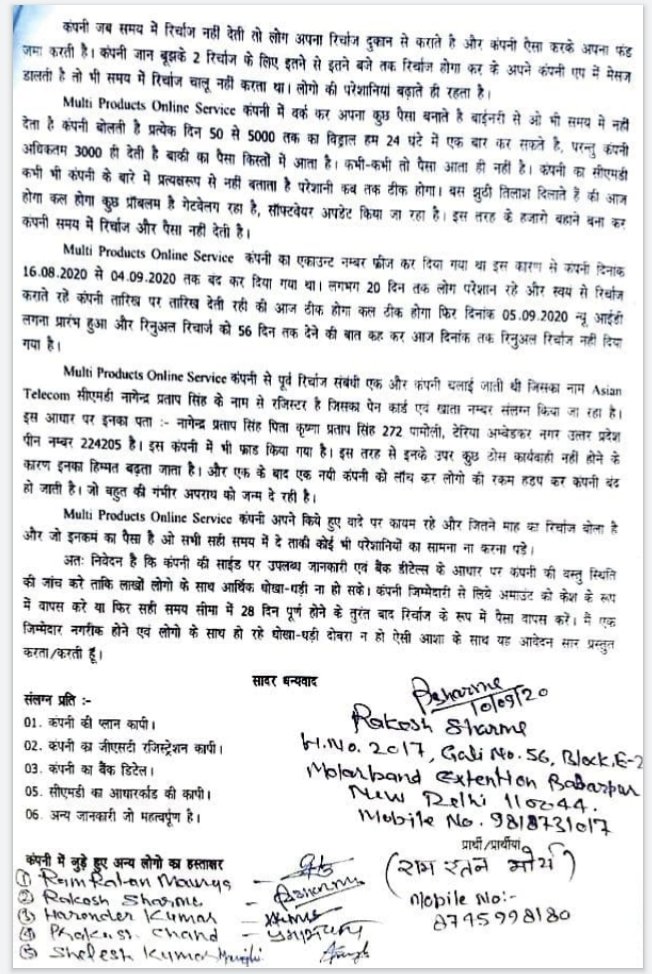 कंपनी जब समय में रिर्चाज नही देती तो लोग अपना रिर्चाज दुकान से कराते है और कंपनी ऐसा करके अपना फंड
जमा करती है। कंपनी जान बूझके 2 रिर्चाज के लिए इतने से इतने बजे तक रिर्चाज होगा कर के अपने कंपनी एप में मेसज
डालती है तो भी समय में रिर्चाज चालू नही करता था। लोगो की परेशानियां बढ़ाते ही रहता है।
Multi Products Online Service कंपनी में वर्क कर अपना कुछ पैसा बनाते है बाईनरी से ओ भी समय में नही
देता है कंपनी बोलती है प्रत्येक दिन 50 से 5000 तक का विड्राल हम 24 घंटे में एक बार कर सकते है, परन्तु कंपनी
अधिकतम 3000 ही देती है बाकी का पैसा किस्तों में आता है। कभी-कभी तो पैसा आता ही नही है। कंपनी का सीएमडी
कभी भी कंपनी के बारे में प्रत्यक्षरूप से नही बताता है परेशानी कब तक ठीक होगा। बस झुठी तिलाश दिलाते हैं की आज
होगा कल होगा कुछ प्रॉबलम है गेटवेलग रहा है, सॉफ्टवेयर अपडेट किया जा रहा है। इस तरह के हजारो बहाने बना कर
कंपनी समय में रिर्चाज और पैसा नही देती है।
Multi Products Online Service कंपनी का एकाउन्ट नम्बर फ्रीज कर दिया गया था इस कारण से कंपनी दिनाक
16.08.2020 से 04.09.2020 तक बंद कर दिया गया था। लगभग 20 दिन तक लोग परेशान रहे और स्वय से रिर्चाज
कराते रहें कंपनी तारिख पर तारिख देती रही की आज ठीक होगा कल ठीक होगा फिर दिनांक 05.09.2020 न्यू आईडी
लगना प्रारंभ हुआ और रिनुअल रिचार्ज को 56 दिन तक देने की बात कह कर आज दिनांक तक रिनुअल रिर्चाज नही दिया
गया है।
Multi Products Online Service कंपनी से पूर्व रिर्चाज संबंधी एक और कंपनी चलाई जाती थी जिसका नाम Asian
Telecom सीएमडी नागेन्द्र प्रताप सिंह के नाम से रजिस्टर है जिसका पेन कार्ड एवं खाता नम्बर संलग्न किया जा रहा है।
इस आधार पर इनका पता :- नागेन्द्र प्रताप सिंह पिता कृष्णा प्रताप सिंह 272 पामोली, टेरिया अम्बेडकर नगर उत्तर प्रदेश
पीन नम्बर 224205 है। इस कंपनी में भी फ्राड किया गया है। इस तरह से इनके उपर कुछ ठोस कार्यवाही नही होने के
कारण इनका हिम्मत बढ़ता जाता है। और एक के बाद एक नयी कंपनी को लाँच कर लोगो की रकम हड़प कर कंपनी बंद
हो जाती है। जो बहुत की गंभीर अपराध को जन्म दे रही है।
Multi Products Online Service कंपनी अपने किये हुए वादे पर कायम रहे और जितने माह का रिर्चाज बोला है
और जो इनकमं का पैसा है ओ सभी सही समय में दे ताकी कोई भी परेशानियों का सामना ना करना पडे।
अतः निवेदन है कि कंपनी की साईड पर उपलब्ध जानकारी एवं बैंक डीटेल्स के आधार पर कंपनी की वस्तु स्थिति
की जांच करे ताकि लाखों लोगो के साथ आर्थिक धोखा-धड़ी ना हो सके। कंपनी जिम्मेदारी से लिये अमाउंट को कैश के रूप
में वापस करे या फिर सही समय सीमा में 28 दिन पूर्ण होने के तुरंत बाद रिर्चाज के रूप में पैसा वापस करें। में एक
जिम्मेदार नगरीक होने एवं लोगो के साथ हो रहे धोखा-धड़ी दोबरा न हो ऐसी आशा के साथ यह आवेदन सार प्रस्तुत
करता/करती हूँ।
सादर धन्यवाद
संलग्न प्रति :-
01. कंपनी की प्लान कापी।
02. कंपनी का जीएसटी रजिस्ट्रेशन कापी।
03. कंपनी का बैंक डिटेल।
05. सीएमडी का आधारकार्ड की कापी।
06. अन्य जानकारी जो महत्वपूर्ण है।
RSharma
10/09/20
Rakesh Sharma
H.No. 2017, Gali No. 56, Block, E-2
Molarband Extention Badarpur
New Delhi 110044.
Mobile No. 9818731017
प्रार्थी/प्रार्थीया
(राम रतन मौर्य)
Mobile No:-
8745998180
कंपनी में जुड़े हुए अन्य लोगो का हस्ताक्षर
① Ram Ratan Maurya -
② Rakesh Sharma - RSharma
③ Harender Kumar -
④ Prakash Chand -
⑤ Shelesh Kumar